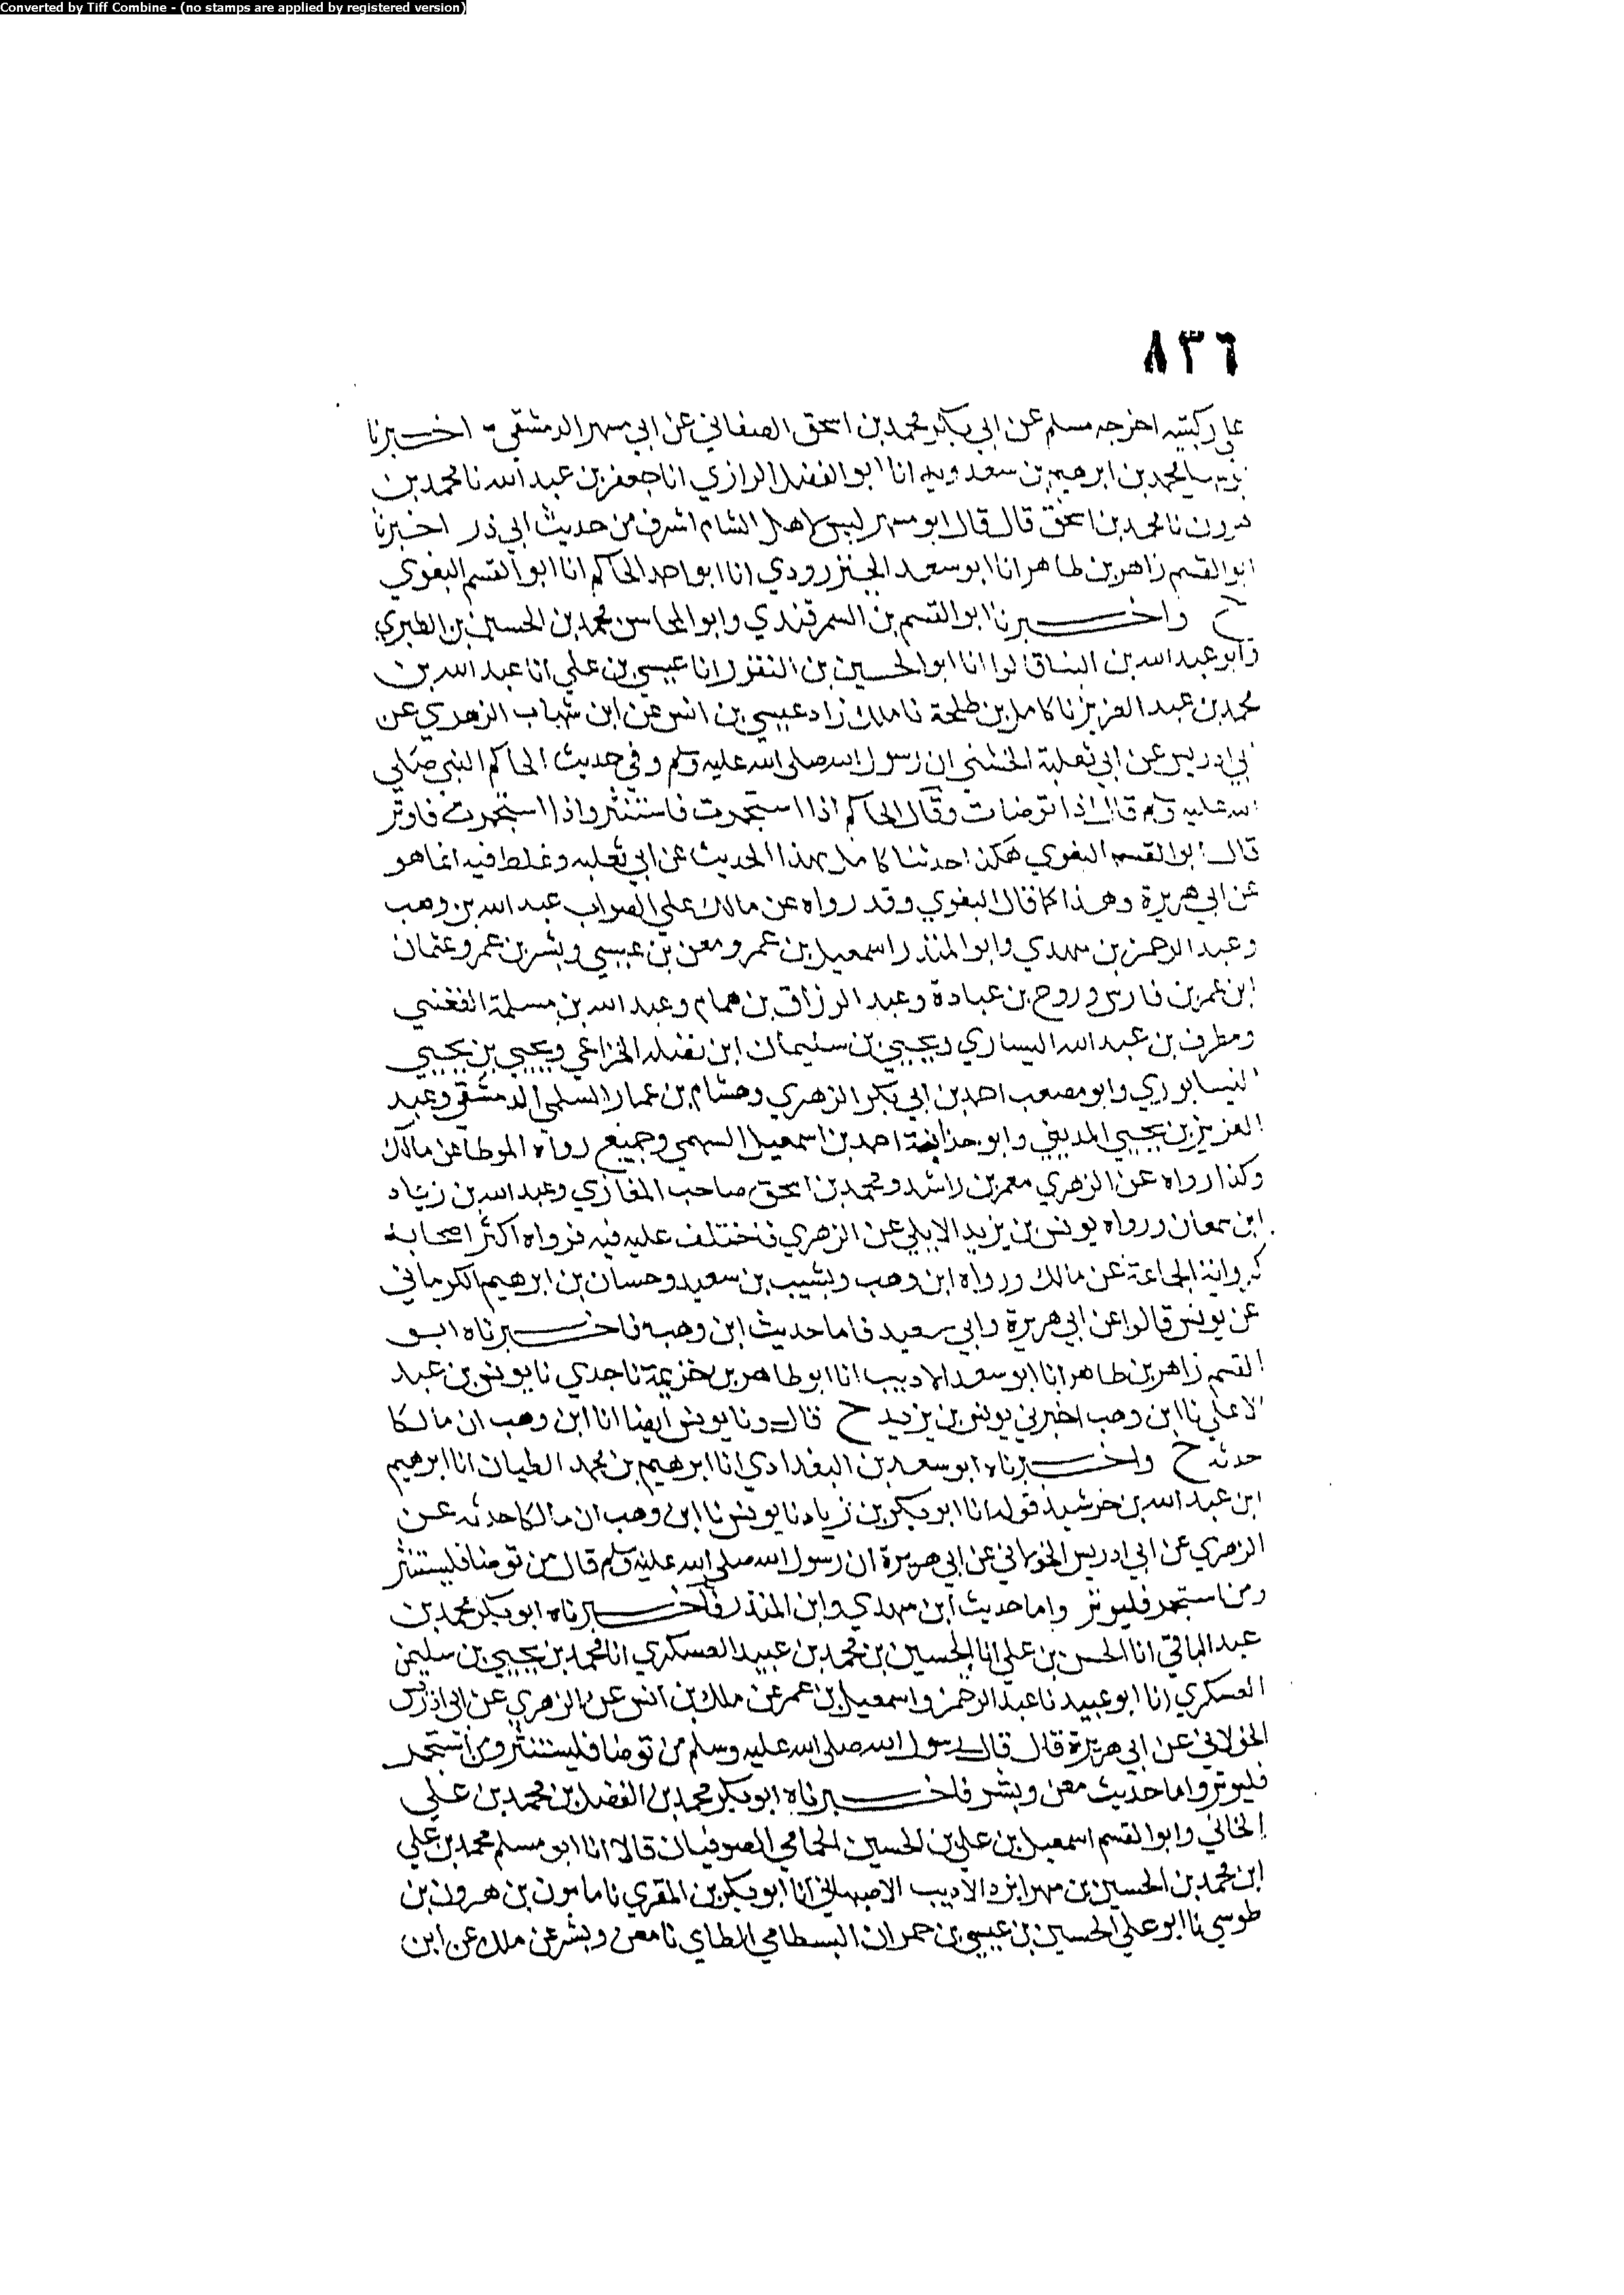 Converted by Tiff Combine - (no stamps are applied by registered version)
٨٣٦
على ركبتيه اخرجه مسلم عن ابي بكر محمد بن اسحق الصغاني عن ابي مسهر الدمشقي اخبرنا
محمد بن ابرهيم بن سعدويه انا ابو الفضل الرازي انا جعفر بن عبد الله نا محمد بن
هرون نا محمد بن اسحق قال قال ابو مسهر ليس لاهل الشام اشرف من حديث ابي ذر اخبرنا
ابو القسم زاهر بن طاهر انا ابو سعد الجنزرودي انا ابو احمد الحاكم انا ابو القسم البغوي
ح واخبرنا ابو القسم بن السمرقندي وابو المحاسن محمد بن الحسين بن الطبري
وابو عبد الله بن البنا قالوا انا ابو الحسين بن النقور انا عيسى بن علي انا عبد الله بن
محمد بن عبد العزيز نا كامل بن طلحة نا ملك زاد عيسى بن انس عن ابن شهاب الزهري عن
ابي ادريس عن ابي ثعلبة الخشني ان رسول الله صلى الله عليه وسلم وفي حديث الحاكم النبي صلى
الله عليه وسلم قال اذا توضات وقال الحاكم اذا استجمرت فاستنثر واذا استجمرت فاوتر
قال ابو القسم البغوي هكذا حدثنا كامل بهذا الحديث عن ابي ثعلبه وغلط فيه انما هو
عن ابي هريرة وهذا كما قال البغوي وقد رواه عن مالك على الصواب عبد الله بن وهب
وعبد الرحمن بن مهدي وابو المنذر اسمعيل بن عمر ومعن بن عيسى وبشر بن عمر وعثمان
ابن عمر بن فارس وروح بن عبادة وعبد الرزاق بن همام وعبد الله بن مسلمة القعنبي
ومطرف بن عبد الله اليساري ويحيى بن سليمان ابن نضله الخزاعي ويحيى بن يحيى
النيسابوري وابو مصعب احمد بن ابي بكر الزهري وهشام بن عمار السلمي الدمشقي وعبد
العزيز بن يحيى المديني وابو حذافة احمد بن اسمعيل السهمي وجميع رواه الموطا عن مالك
وكذا رواه عن الزهري معمر بن راشد ومحمد بن اسحق صاحب المغازي وعبد الله بن زياد
ابن سمعان ورواه يونس بن يزيد الايلي عن الزهري فاختلف عليه فيه فرواه اكثر اصحابه
كرواية الجماعة عن مالك ورواه ابن وهب وشبيب بن سعيد وحسان بن ابرهيم الكرماني
عن يونس قالوا عن ابي هريرة وابي سعيد فاما حديث ابن وهب فاخبرناه ابو
القسم زاهر بن طاهر انا ابو سعد الاديب انا ابو طاهر بن خزيمة نا جدي نا يونس بن عبد
الاعلى نا ابن وهب اخبرني يونس بن يزيد ح قال ونا يونس ايضا انا ابن وهب ان مالكا
حدثه ح واخبرناه ابو سعد بن البغدادي انا ابرهيم بن محمد الطيان انا ابرهيم
ابن عبد الله بن خرشيذ قوله انا ابو بكر بن زياد نا يونس نا ابن وهب ان مالكا حدثه عن
الزهري عن ابي ادريس الخولاني عن ابي هريرة ان رسول الله صلى الله عليه وسلم قال من توضا فليستنثر
ومن استجمر فليوتر واما حديث ابن مهدي وابن المنذر فاخبرناه ابو بكر محمد بن
عبد الباقي انا الحسن بن علي انا الحسين بن محمد بن عبيد العسكري انا محمد بن يحيى بن سليمن
العسكري انا ابو عبيد نا عبد الرحمن واسمعيل بن عمر عن ملك بن انس عن الزهري عن ابي ادريس
الخولاني عن ابي هريرة قال قال رسول الله صلى الله عليه وسلم من توضا فليستنثر ومن استجمر
فليوتر واما حديث معن وبشر فاخبرناه ابو بكر محمد بن الفضل بن محمد بن علي
الخاني وابو القسم اسمعيل بن علي بن الحسين الحمامي الصوفيان قالا انا ابو مسلم محمد بن علي
ابن محمد بن الحسين بن مهرابزد الاديب الاصبهاني انا ابو بكر بن المقري نا مامون بن هرون بن
طوسي نا ابو علي الحسين بن عيسى بن حمران البسطامي الطاي نا معن وبشر عن ملك عن ابن